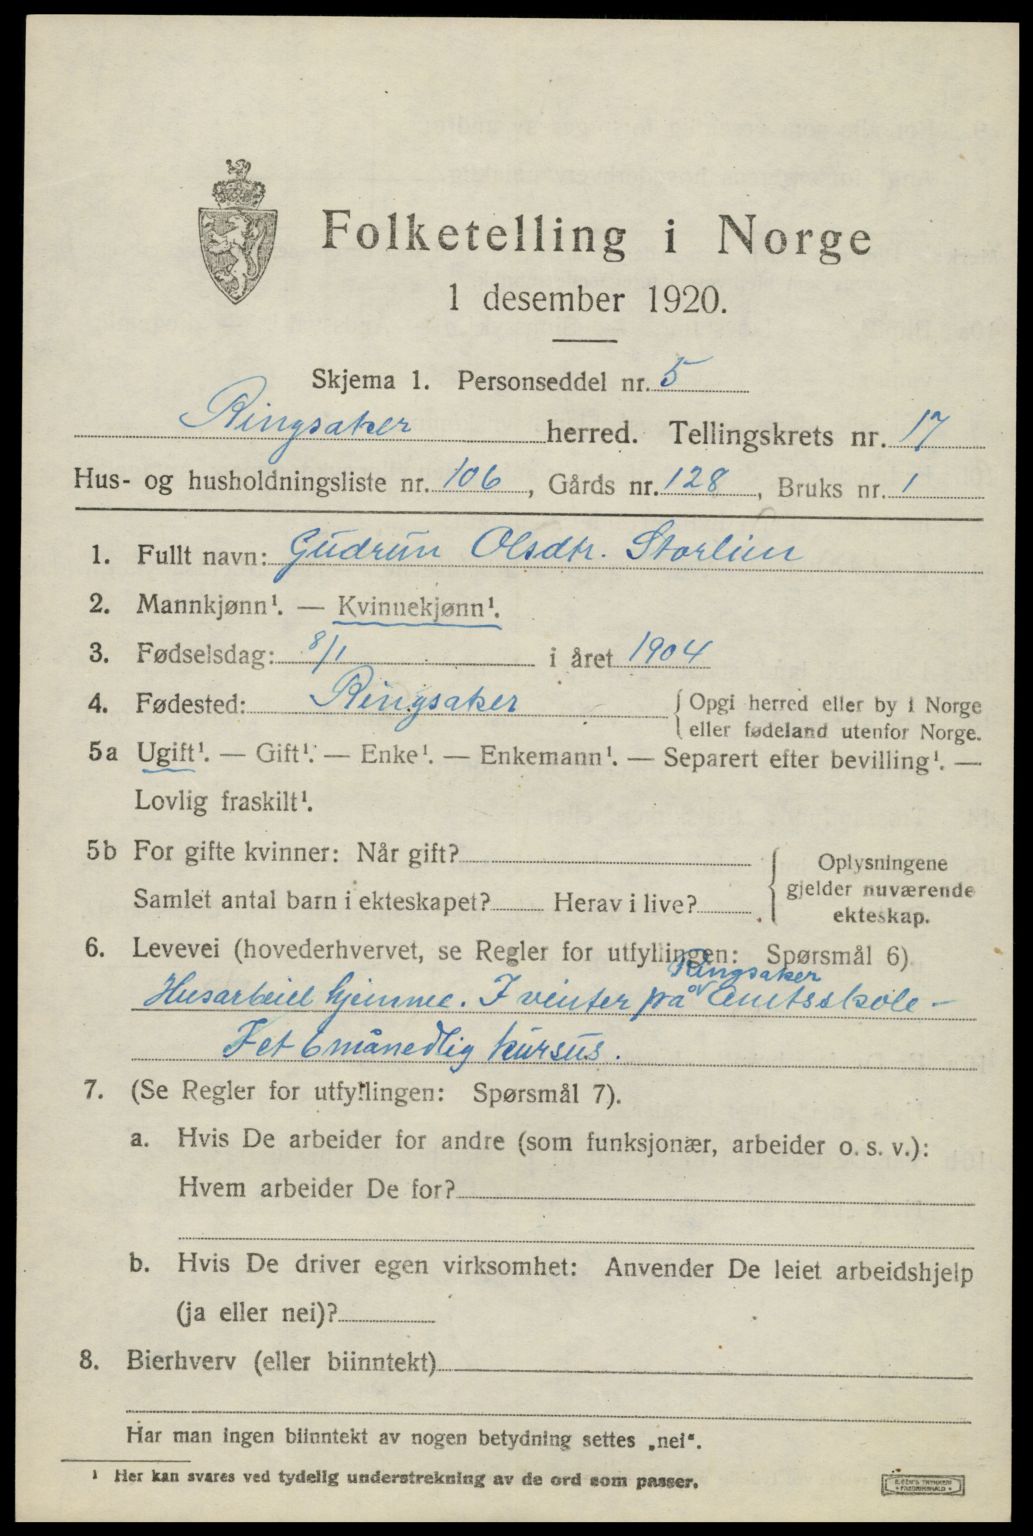 Folketelling i Norge
1 desember 1920.
Skjema 1. Personseddel nr. 5
Ringsaker herred. Tellingskrets nr. 17
Hus- og husholdningsliste nr. 106, Gårds nr. 128, Bruks nr. 1
1. Fullt navn: Gudrun Olsdtr. Storlien
2. Mannkjønn¹. — Kvinnekjønn¹.
3. Fødselsdag: 8/1 i året 1904
4. Fødested: Ringsaker { Opgi herred eller by i Norge
eller fødeland utenfor Norge.
5a Ugift¹. — Gift¹. — Enke¹. — Enkemann¹. — Separert efter bevilling¹. —
Lovlig fraskilt¹.
5b For gifte kvinner: Når gift? { Oplysningene
gjelder nuværende
Samlet antal barn i ekteskapet? Herav i live?
ekteskap.
6. Levevei (hovederhvervet, se Regler for utfyllingen: Spørsmål 6)
Ringsaker
Husarbeid hjemme. I vinter på Amtsskole –
I et 6 månedlig kursus.
7. (Se Regler for utfyllingen: Spørsmål 7).
a. Hvis De arbeider for andre (som funksjonær, arbeider o. s. v.):
Hvem arbeider De for?
b. Hvis De driver egen virksomhet: Anvender De leiet arbeidshjelp
(ja eller nei)?
8. Bierhverv (eller biinntekt)
Har man ingen biinntekt av nogen betydning settes „nei“.
¹ Her kan svares ved tydelig understrekning av de ord som passer.